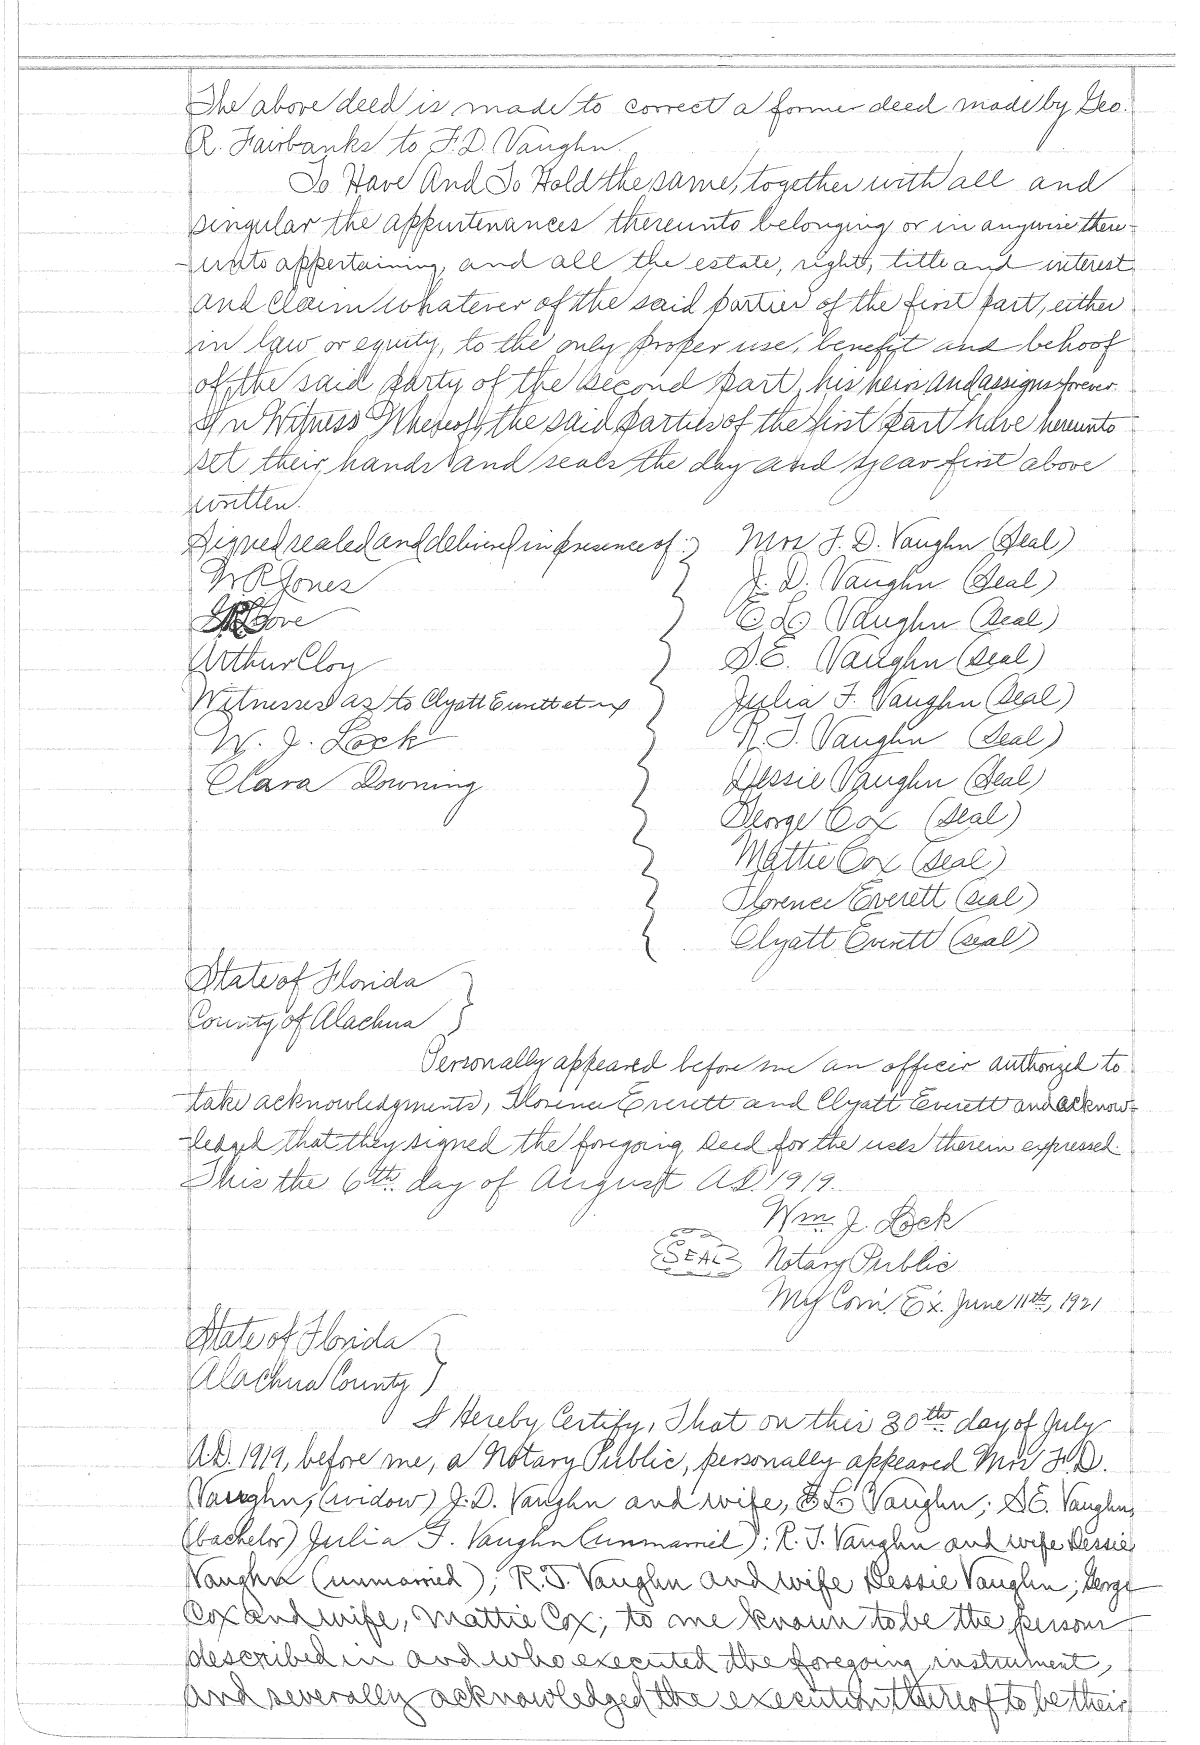 The above deed is made to correct a former deed made by Geo.
R. Fairbanks to F.D. Vaughn.
To Have And To Hold the same, together with all and
singular the appurtenances thereunto belonging or in anywise there-
unto appertaining, and all the estate, right, title and interest
and claim whatever of the said parties of the first part, either
in law or equity, to the only proper use, benefit and behoof
of the said party of the second part, his heirs and assigns forever.
In Witness Whereof, the said parties of the first part have hereunto
set their hands and seals the day and year first above
written.
Signed sealed and delivered in presence of:) Mrs F. D. Vaughn (Seal)
W R Jones J. D. Vaughn (Seal)
E L Vaughn (Seal)
Arthur Cloy S.E. Vaughn (Seal)
Witnesses as to Clyatt Everett et ux Julia F. Vaughn (Seal)
W. J. Lock R.T. Vaughn (Seal)
Clara Downing Dessie Vaughn (Seal)
George Cox (Seal)
Mattie Cox (Seal)
Florence Everett (Seal)
Clyatt Everett (Seal)
State of Florida
County of Alachua
Personally appeared before me an officer authorized to
take acknowledgments, Florence Everett and Clyatt Everett and acknow-
ledged that they signed the foregoing Deed for the uses therein expressed.
This the 6th. day of August A.D. 1919.
Wm. J. Lock
SEAL Notary Public
My Com. Ex. June 11th, 1921
State of Florida
Alachua County
I Hereby Certify, That on this 30th. day of July
A.D. 1919, before me, a Notary Public, personally appeared Mrs F.D.
Vaughn, (widow) J.D. Vaughn and wife, E L Vaughn; S E. Vaughn,
(bachelor) Julia F. Vaughn (unmarried); R.T. Vaughn and wife Dessie
Vaughn (unmarried); R.T. Vaughn and wife Dessie Vaughn; George
Cox and wife, Mattie Cox; to me known to be the person
described in and who executed the foregoing instrument,
and severally acknowledged the execution thereof to be their